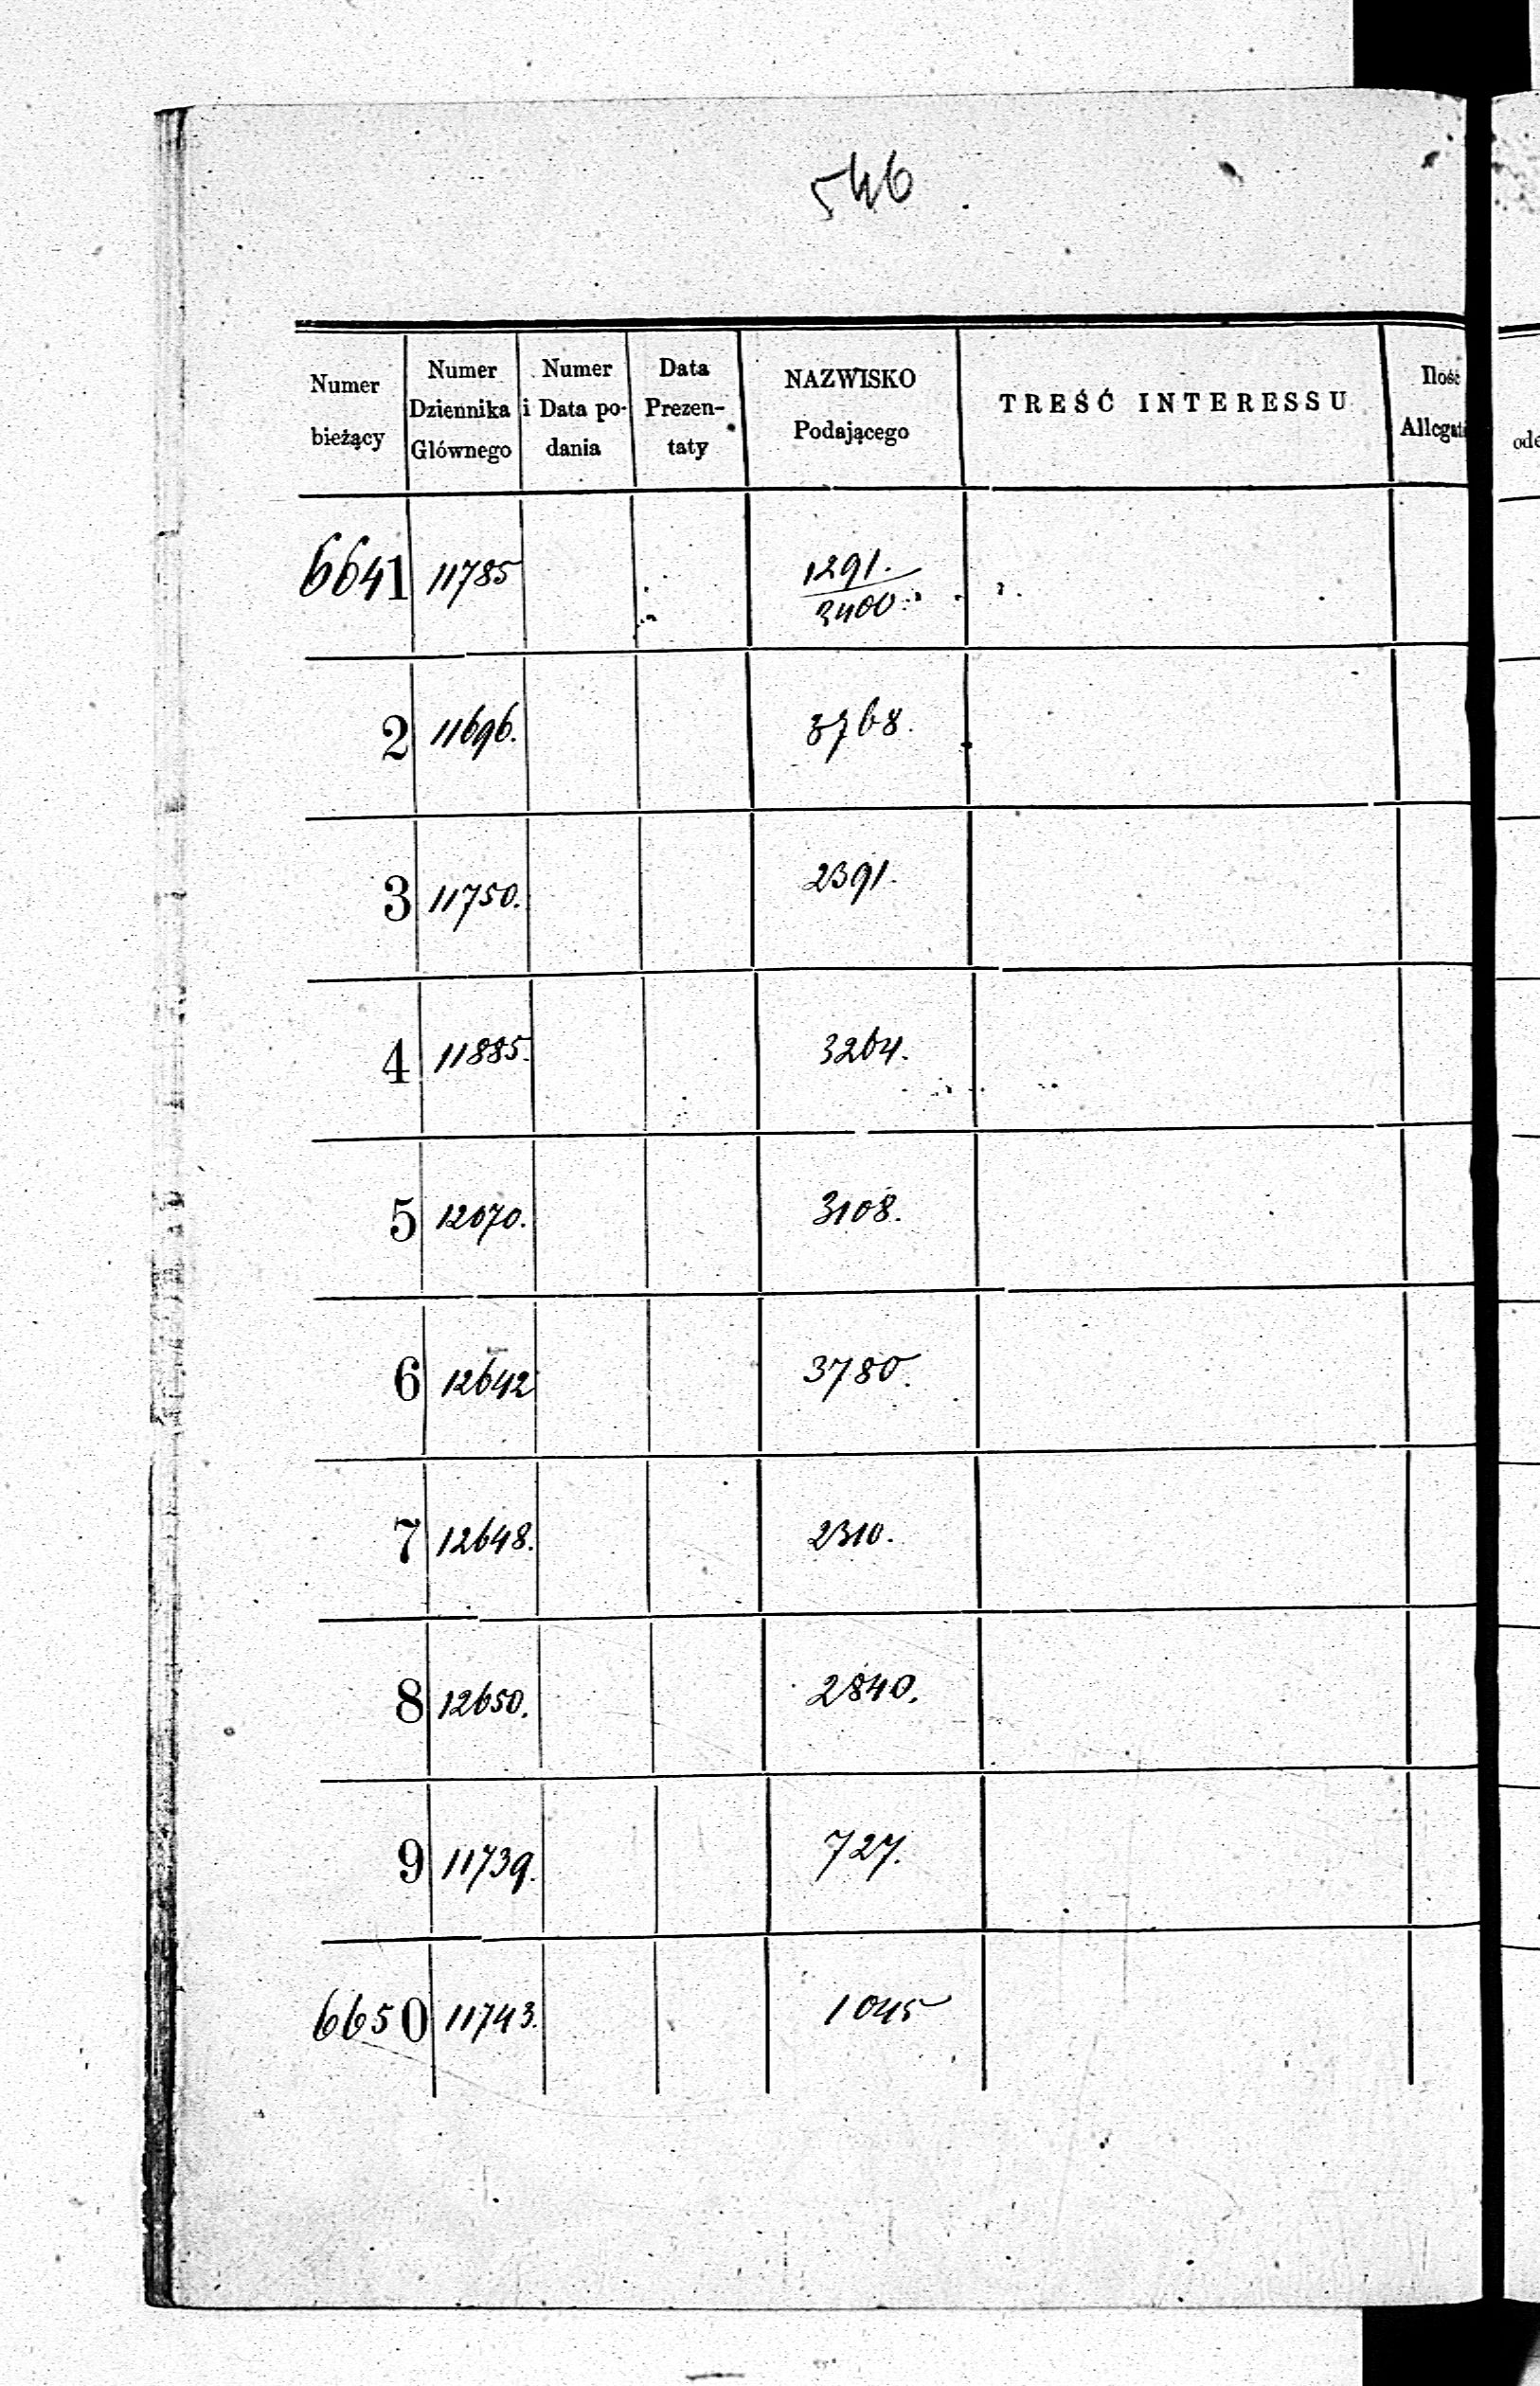 546
Numer bieżący | Numer Dziennika Głównego | Numer i Data podania | Data Prezentaty | NAZWISKO Podającego | TREŚĆ INTERESSU | Ilość Allegat
6641 11785 1291. / 3400.
2 11696. 3768.
3 11750. 2391.
4 11885. 3264.
5 12070. 3108.
6 12642 3780.
7 12648. 2310.
8 12650. 2840.
9 11739. 727.
6650 11743. 1045